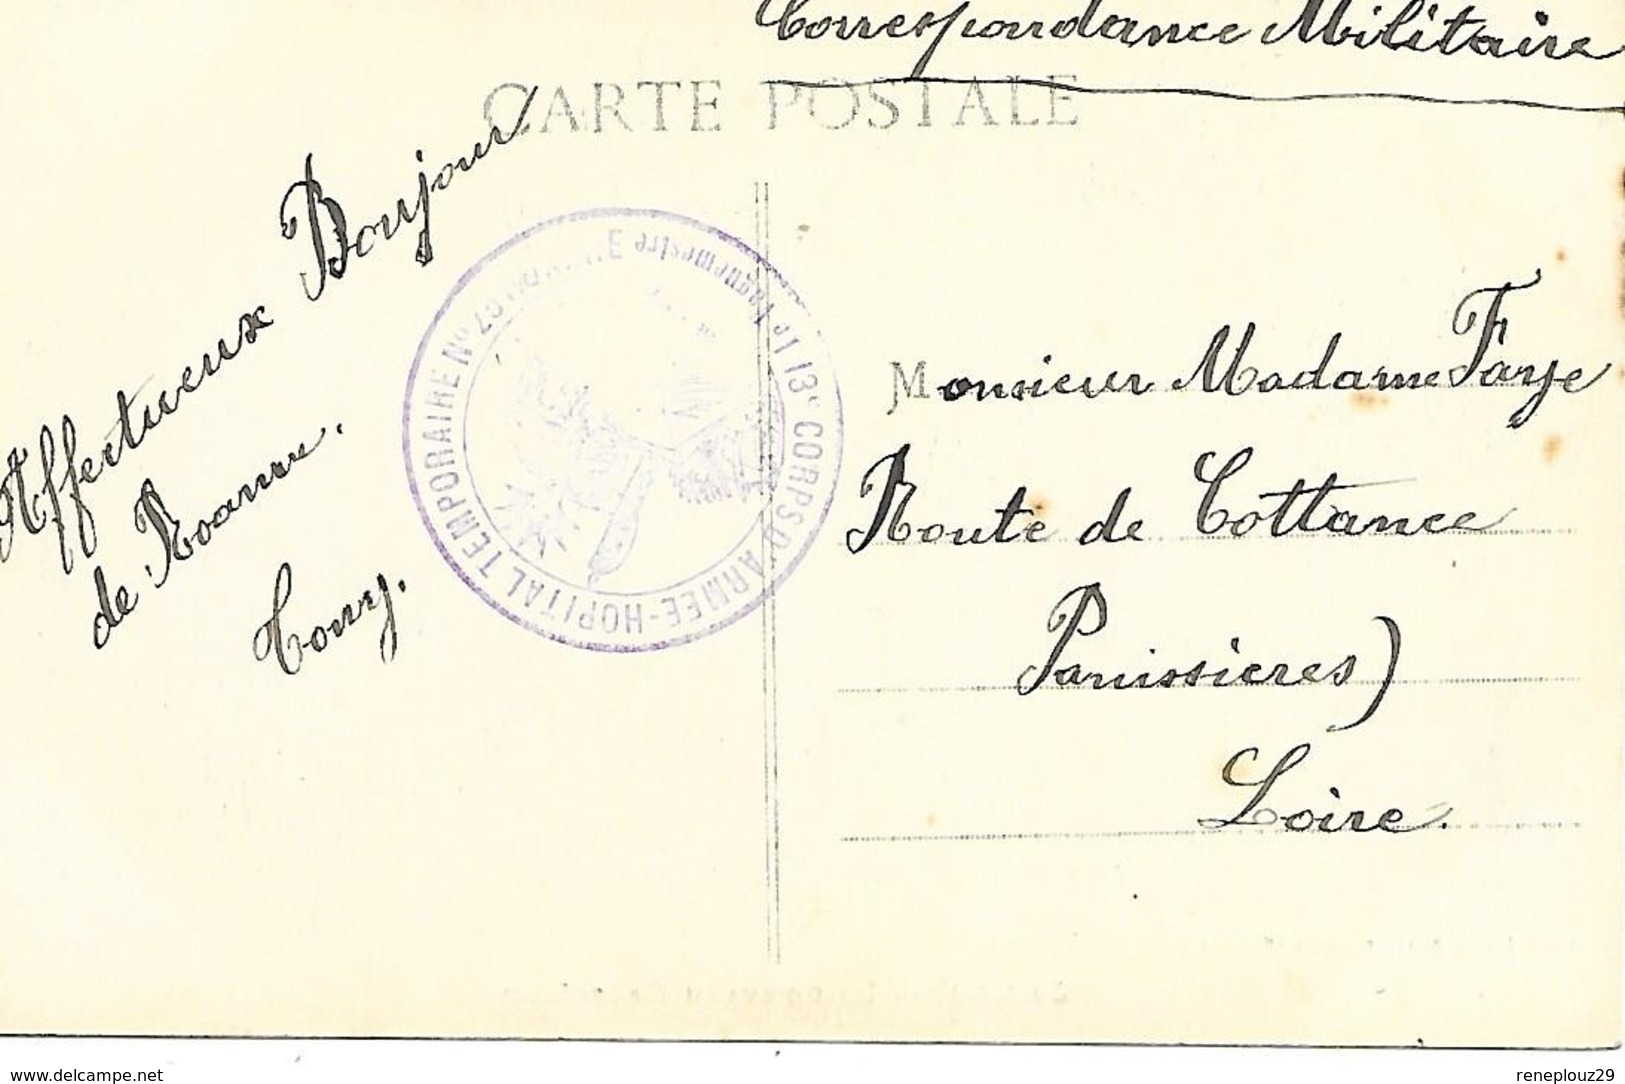 Correspondance Militaire
CARTE POSTALE
Affectueux Bonjour
de Roanne.
Tony.
13e CORPS D'ARMEE - HOPITAL TEMPORAIRE No
Le Vaguemestre
Monsieur Madame Faye
Route de Cottance
Panissieres)
Loire.
www.delcampe.net
reneplouz29